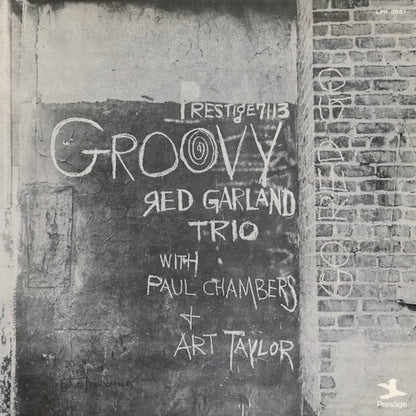 PRESTIGE 7113
GROOVY
RED GARLAND
TRIO
WITH
PAUL CHAMBERS
+
ART TAYLOR
Prestige